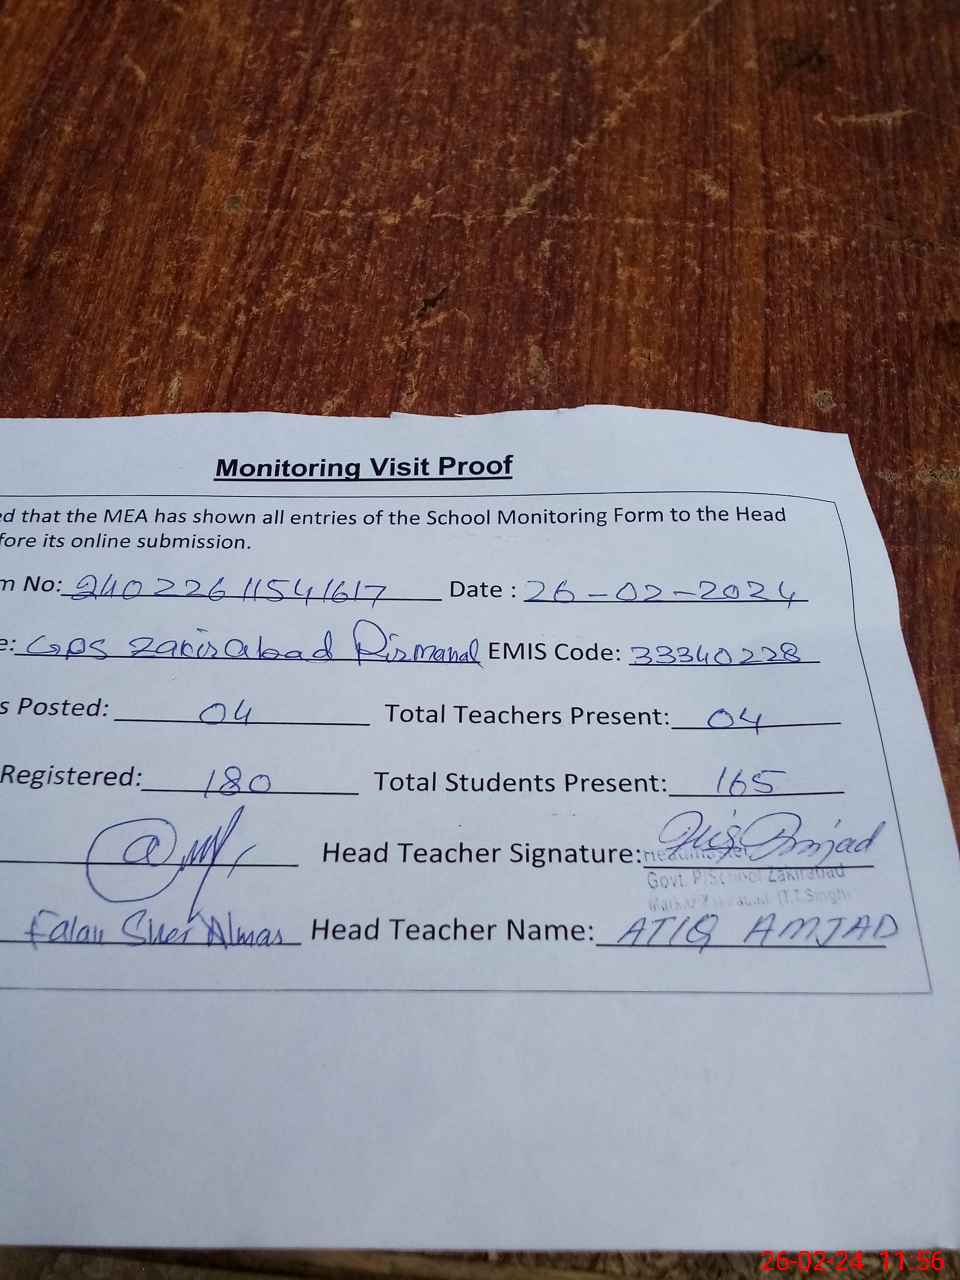 Monitoring Visit Proof
ed that the MEA has shown all entries of the School Monitoring Form to the Head
fore its online submission.
m No: 24022611541617 Date : 26-02-2024
e: GPS Zakirabad Pirmahal EMIS Code: 33340228
s Posted: 04 Total Teachers Present: 04
Registered: 180 Total Students Present: 165
Head Teacher Signature: Atiq Amjad
Govt. P/School Zakirabad
(T.T.Singh)
Falak Sher Almas Head Teacher Name: ATIQ AMJAD
26-02-24 11:56